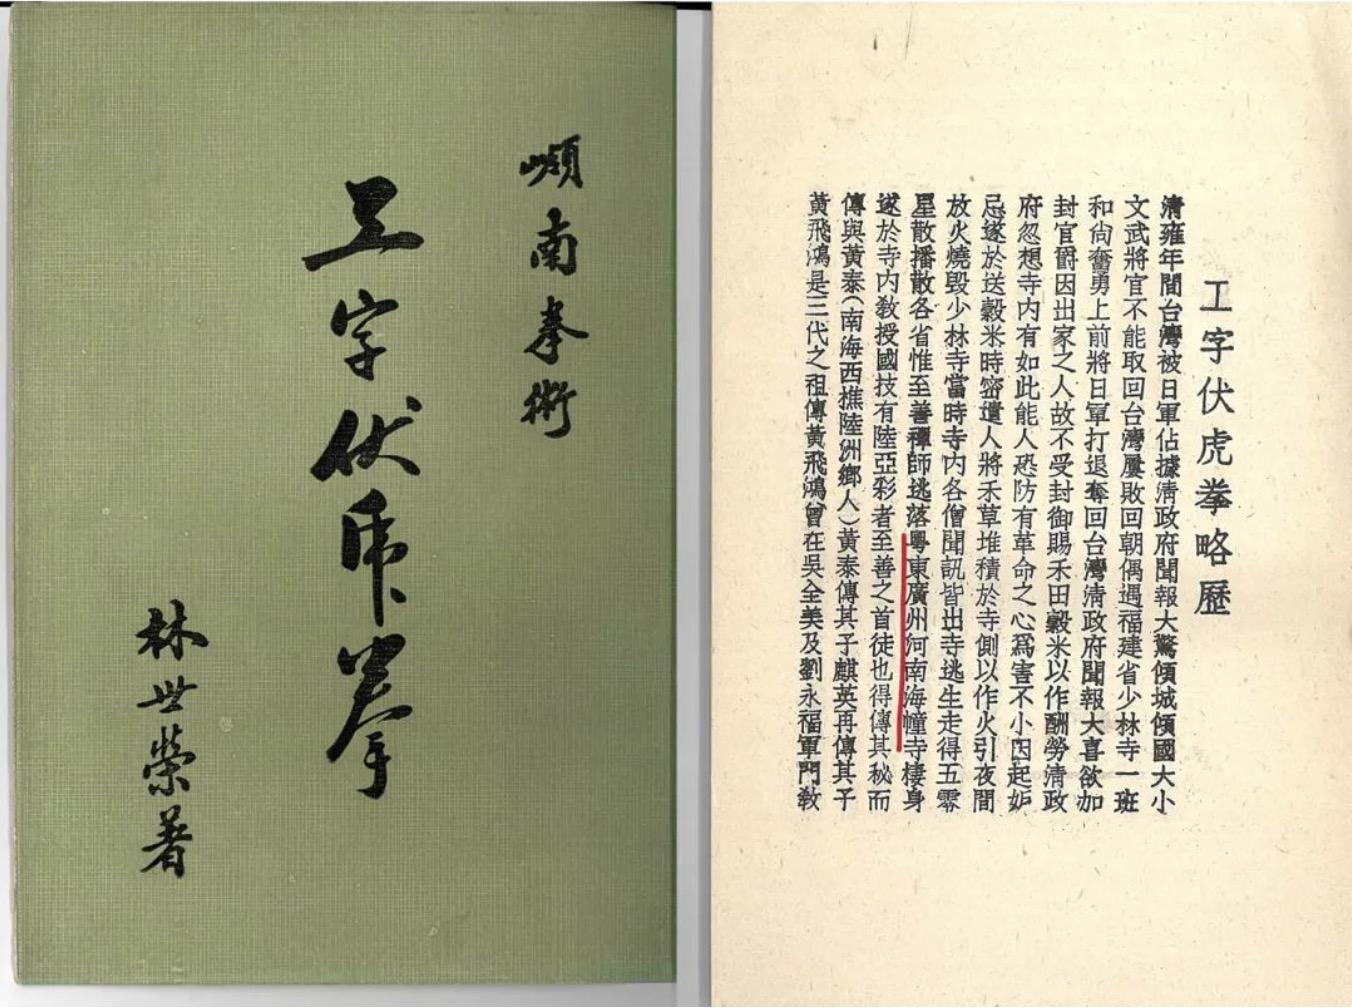 嶺南拳術
工字伏虎拳
林世榮著
工字伏虎拳略歷
清雍年間台灣被日軍佔據清政府聞報大驚傾城傾國大小
文武將官不能取回台灣屢敗回朝偶遇福建省少林寺一班
和尙奮勇上前將日軍打退奪回台灣清政府聞報大喜欲加
封官爵因出家之人故不受封御賜禾田穀米以作酬勞清政
府忽想寺內有如此能人恐防有革命之心爲害不小因起妒
忌遂於送穀米時密遣人將禾草堆積於寺側以作火引夜間
放火燒毀少林寺當時寺内各僧聞訊皆出寺逃生走得五零
星散播散各省惟至善禪師逃落粵東廣州河南海幢寺棲身
遂於寺内敎授國技有陸亞彩者至善之首徒也得傳其秘而
傳與黃泰(南海西樵陸洲鄉人)黃泰傳其子麒英再傳其子
黃飛鴻是三代之祖傳黃飛鴻曾在吳全美及劉永福軍門敎